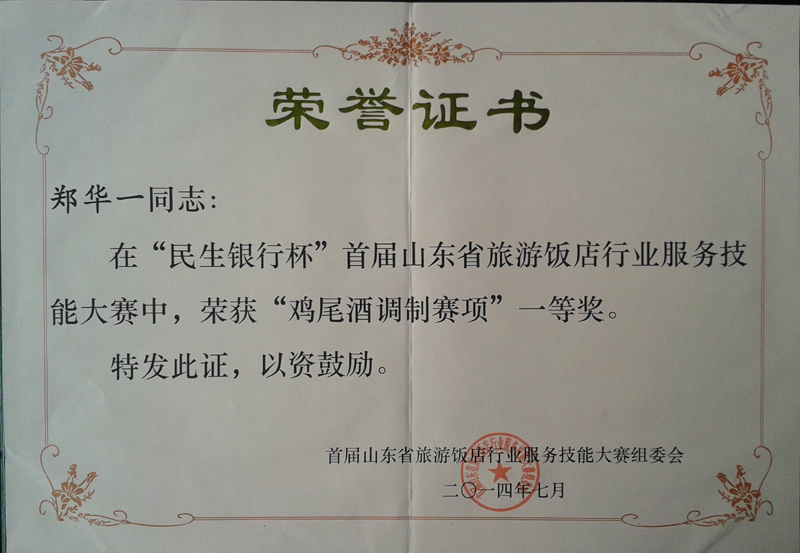 荣誉证书
郑华一同志：
在“民生银行杯”首届山东省旅游饭店行业服务技
能大赛中，荣获“鸡尾酒调制赛项”一等奖。
特发此证，以资鼓励。
首届山东省旅游饭店行业服务技能大赛组委会
二〇一四年七月